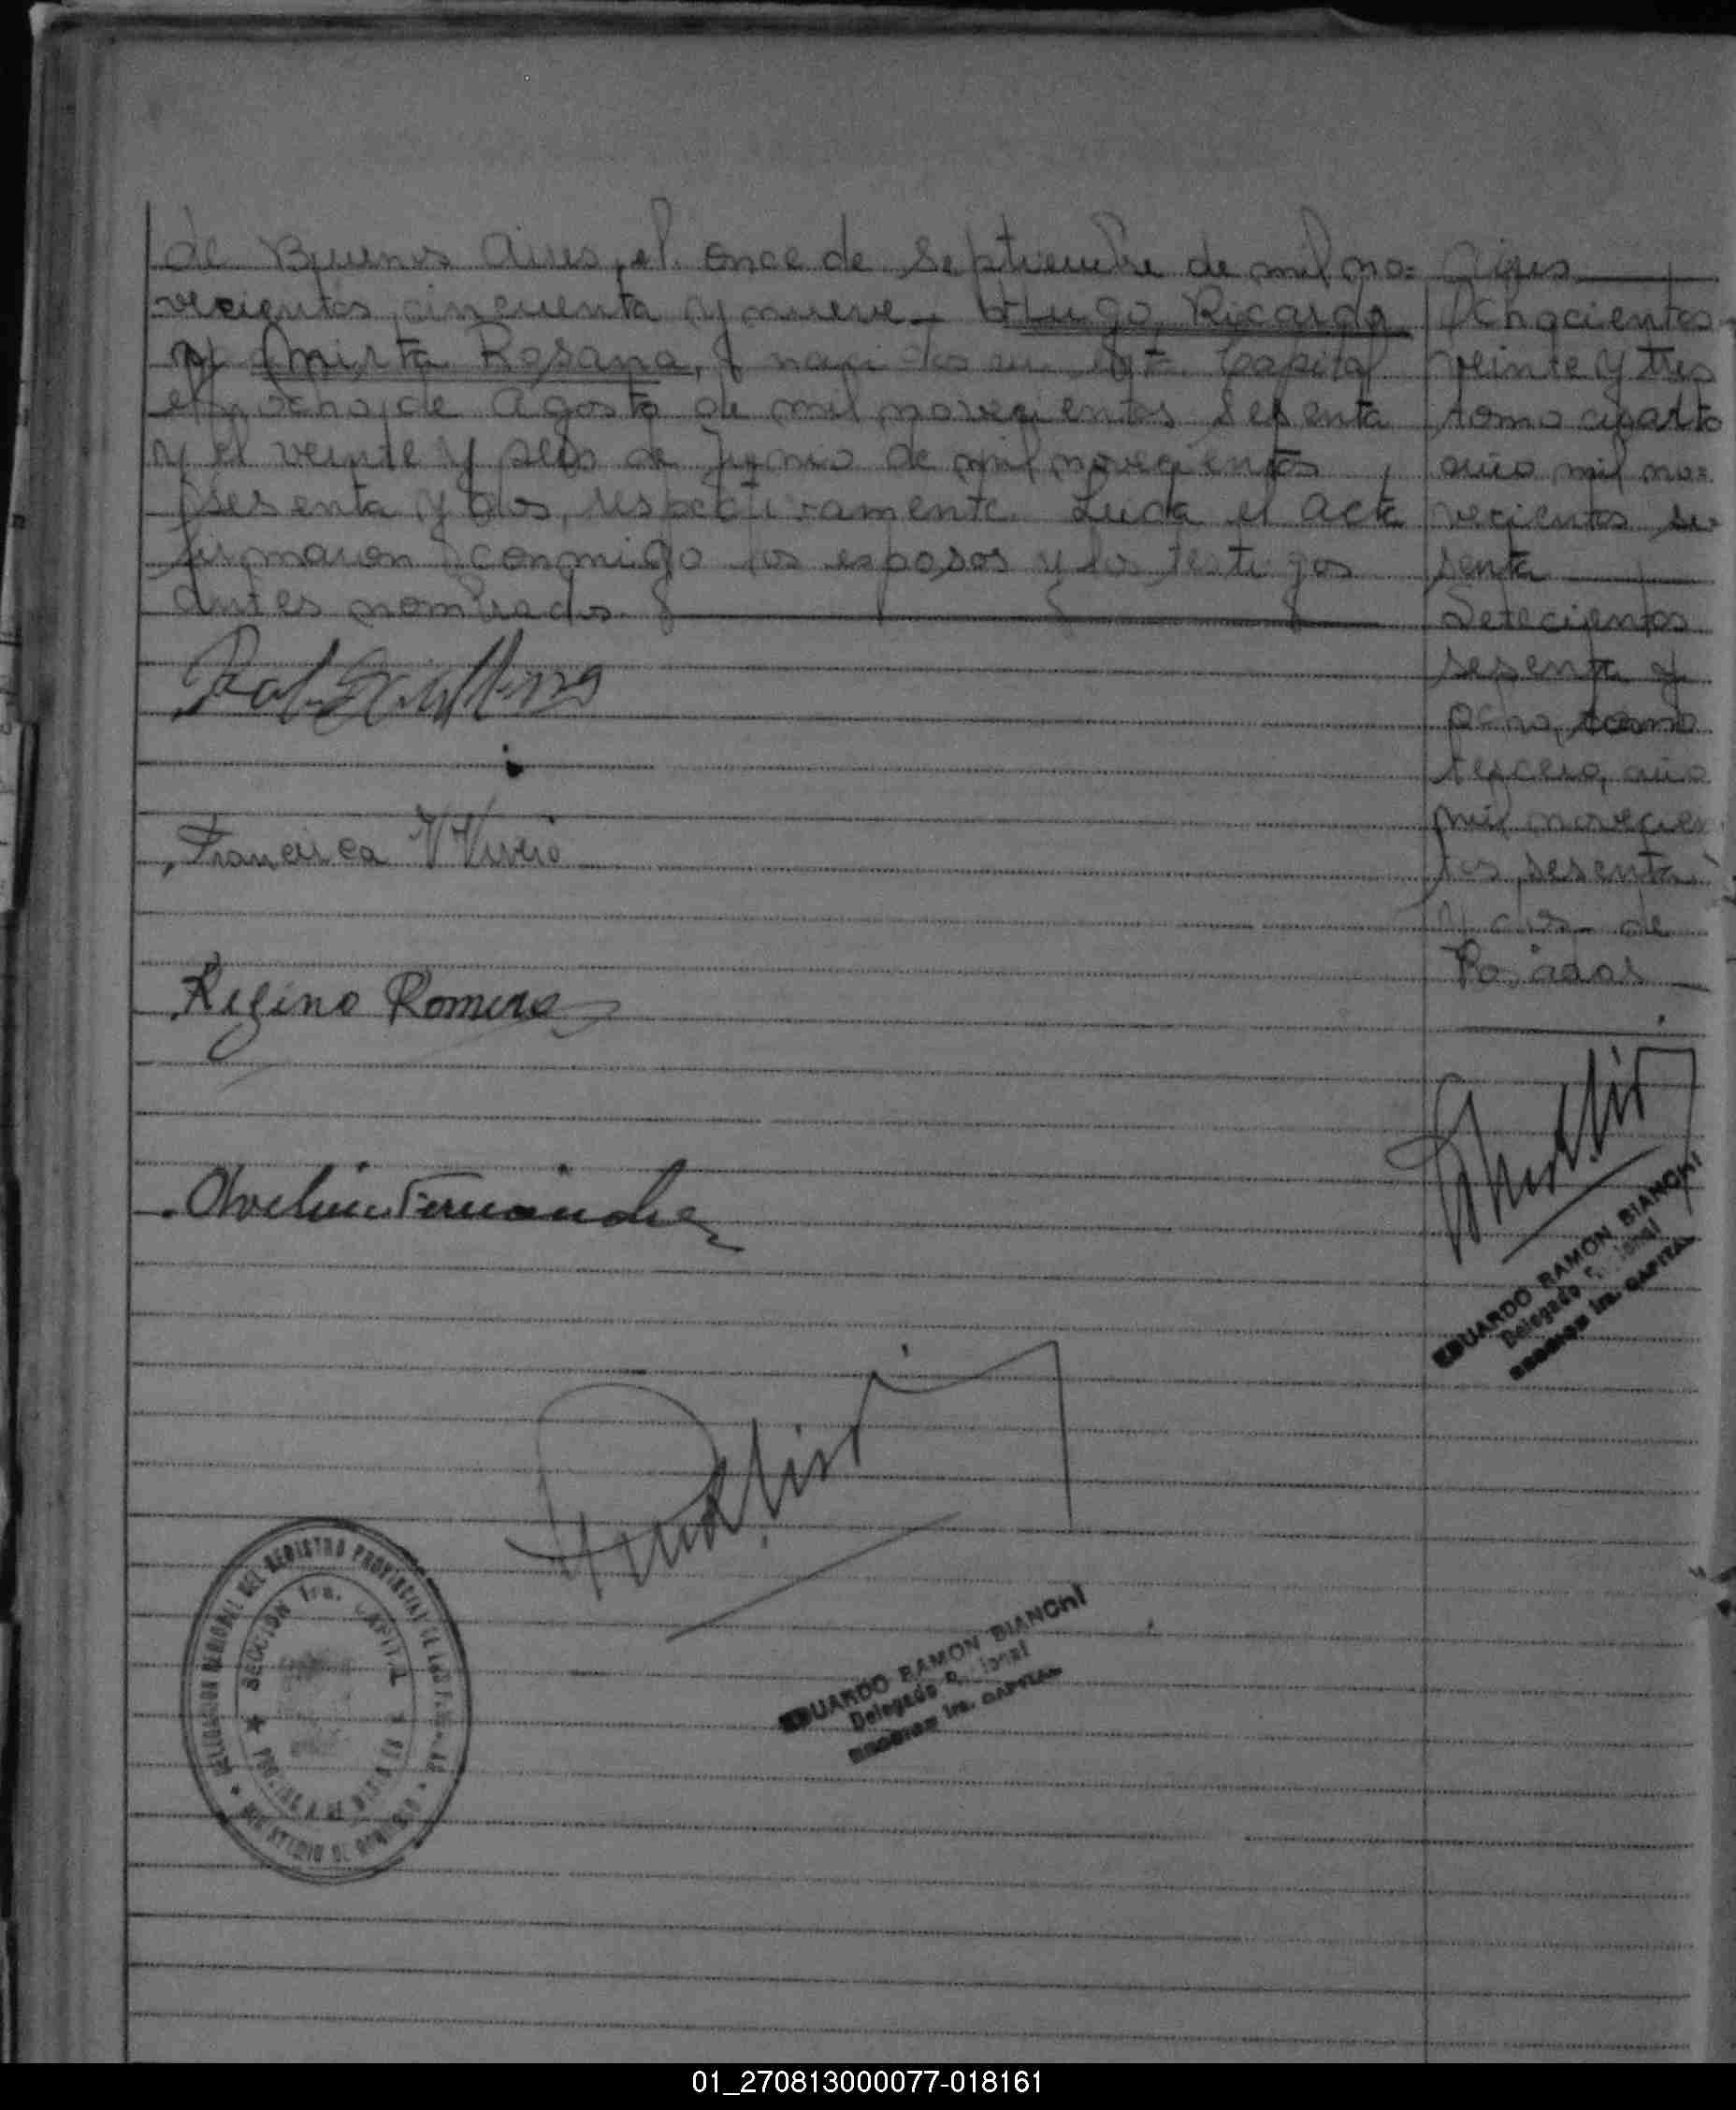 de Buenos Aires, el once de Septiembre de mil no=
vecientos cincuenta y nueve. Hugo Ricardo
y Mirta Rosana, nacidos en esta Capital
el ocho de Agosto de mil novecientos sesenta
y el veinte y seis de Junio de mil novecientos
sesenta y dos, respectivamente. Leida el acta
firmaron conmigo los esposos y los testigos
antes nombrados.
Francisca V Vivero
Regino Romero
Avelino Fernandez
EDUARDO RAMON BIANCHI
Delegado
SECCION 1ra. CAPITAL
DELEGACION REGIONAL DEL REGISTRO PROVINCIAL DE LAS PERSONAS
MINISTERIO DE GOBIERNO
SECCION 1ra. CAPITAL
Aires
Ochocientos
veinte y tres
tomo cuarto
año mil no=
vecientos se=
senta
Setecientos
sesenta y
ocho, tomo
tercero, año
mil novecien
tos sesenta
y dos de
Posadas
EDUARDO RAMON BIANCHI
Delegado
SECCION 1ra. CAPITAL
01_270813000077-018161